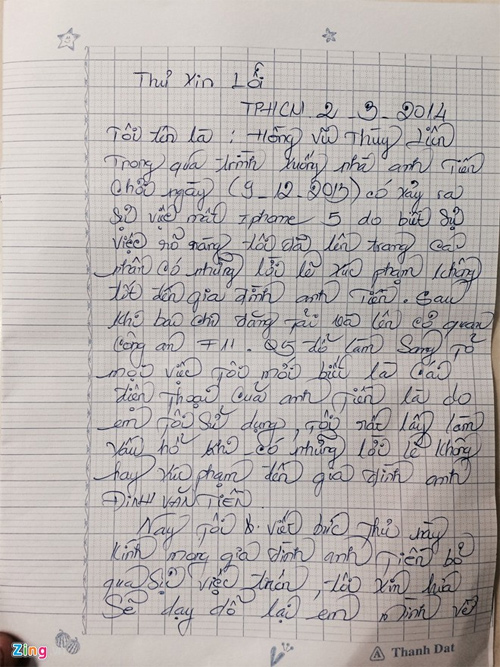 Thư xin Lỗi
TPHCM 2-3-2014
Tôi tên là : Hồng Vũ Thùy Liên
Trong quá trình xuống nhà anh Tiên
Chơi ngày (9-12-2013) có xảy ra
Sự việc mất Iphone 5 do biết Sự
việc rõ ràng tôi đã lên trang cá
nhân có những lời lẽ xúc phạm không
tốt đến gia đình anh Tiên. Sau
khi báo chí đăng tải và lên cơ quan
Công an F11. Q5 để làm Sáng Tỏ
mọi việc Tôi mới biết là cái
điện thoại của anh Tiên là do
em Tôi Sử dụng, Tôi rất lấy làm
xấu hổ khi có những lời lẽ không
hay xúc phạm đến gia đình anh
ĐINH VĂN TIÊN.
Nay Tôi viết bức Thư này
kính mong gia đình anh Tiên bỏ
qua Sự việc trên, tôi xin hứa
Sẽ dạy dỗ lại em mình về
Zing
Thanh Dat